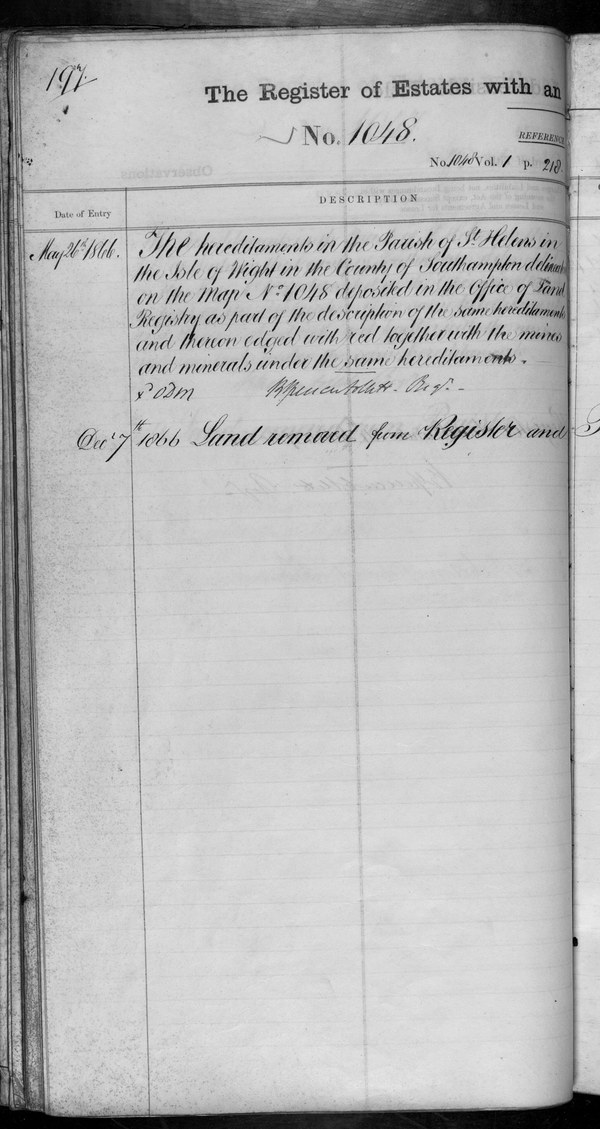 197.
The Register of Estates with an
No. 1048.
REFERENCE
No. 1048 Vol. 1 p. 218.
Observations
DESCRIPTION
Date of Entry
May 26th 1866. The hereditaments in the Parish of St. Helens in
the Isle of Wight in the County of Southampton delineated
on the Map No. 1048 deposited in the Office of Land
Registry as part of the description of the same hereditaments
and thereon edged with red together with the mines
and minerals under the same hereditaments.
Regr.
Decr 7th 1866 Land removed from Register and